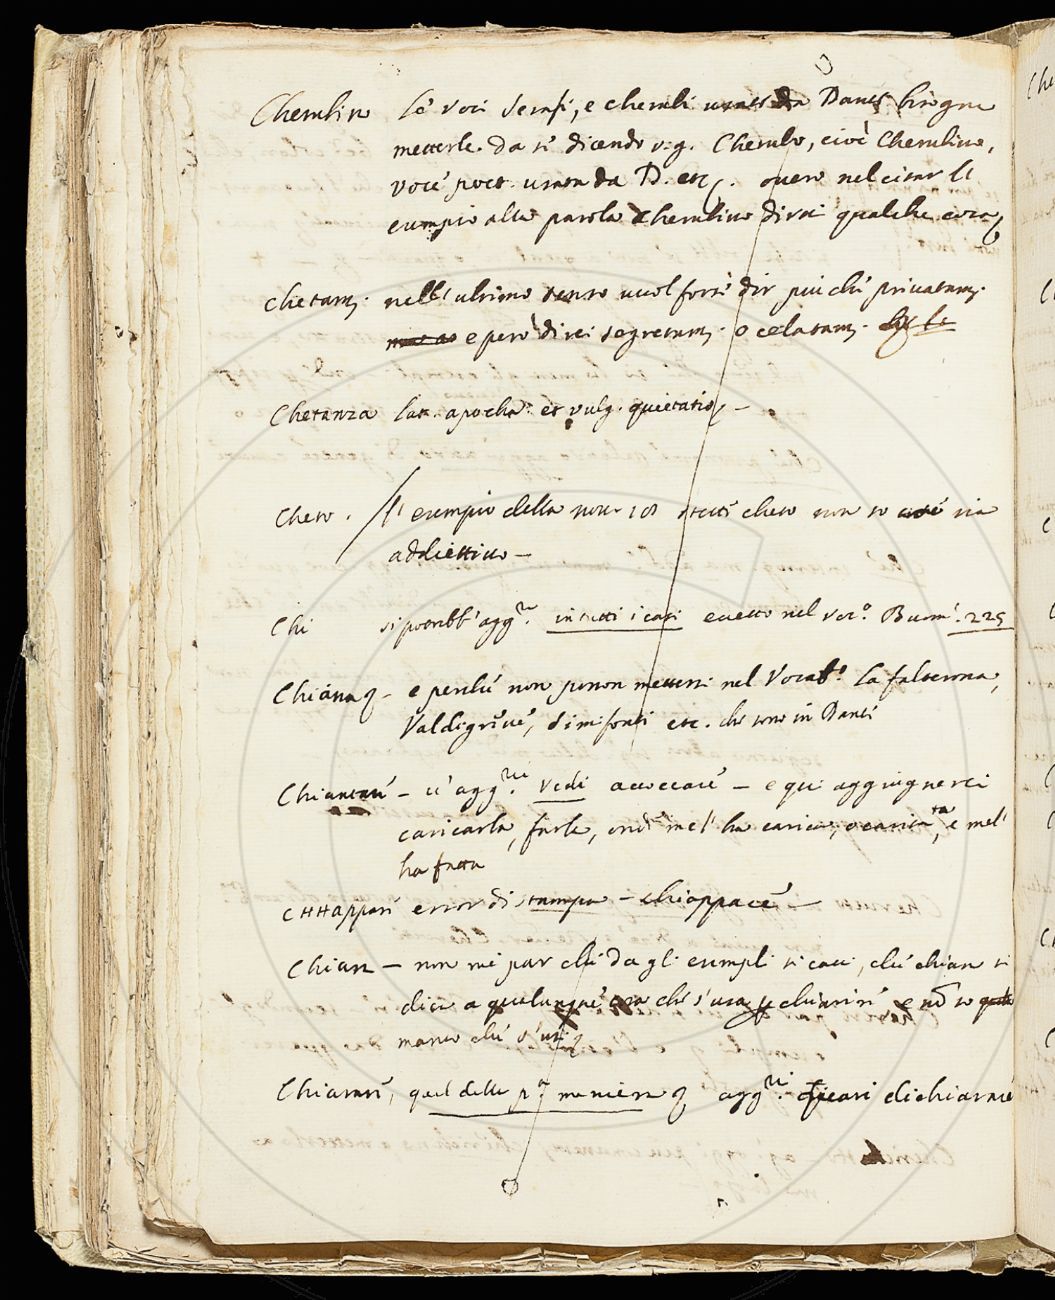 Cherubino Le voci Serafi, e cherubi usate da Dante bisogna
metterle. da sè dicendo v.g. Cherubo, cioè Cherubino,
voce poet. usata da D. etc. overo nel citar l'
esempio alla parola Cherubino dirai qualche cosa
Chetam. nell'ultimo senso vuol forse dir piu chè privatam.
e però direi segretam. o celatam.
Chetanza lat. apocha. et vulg. quietatio
Cheto. l'esempio della nov. 108 stette cheto non so sia
addiettivo
Chi si potrebb' agg.re in tutti i casi eccetto nel voc.o Buom. 225
Chiana e perchè non posson mettersi nel Vocab. La falterona,
Valdigrieve, Simifonti etc. che sono in Dante
Chiantare - vi agg.rei Vedi accoccare - e qui aggiugnerci
caricarla, farla, onde me l'ha carica, o caricata, e mel'
ha fatta
CHHappare error di stampa - chiappace
Chiara - non mi par che dagli esempli si cavi, che chiara si
dica a qualunque che s'usa p chiarire e nō so
manco che s'usi
Chiarare, quel della p.a maniera agg.rei dichiarare